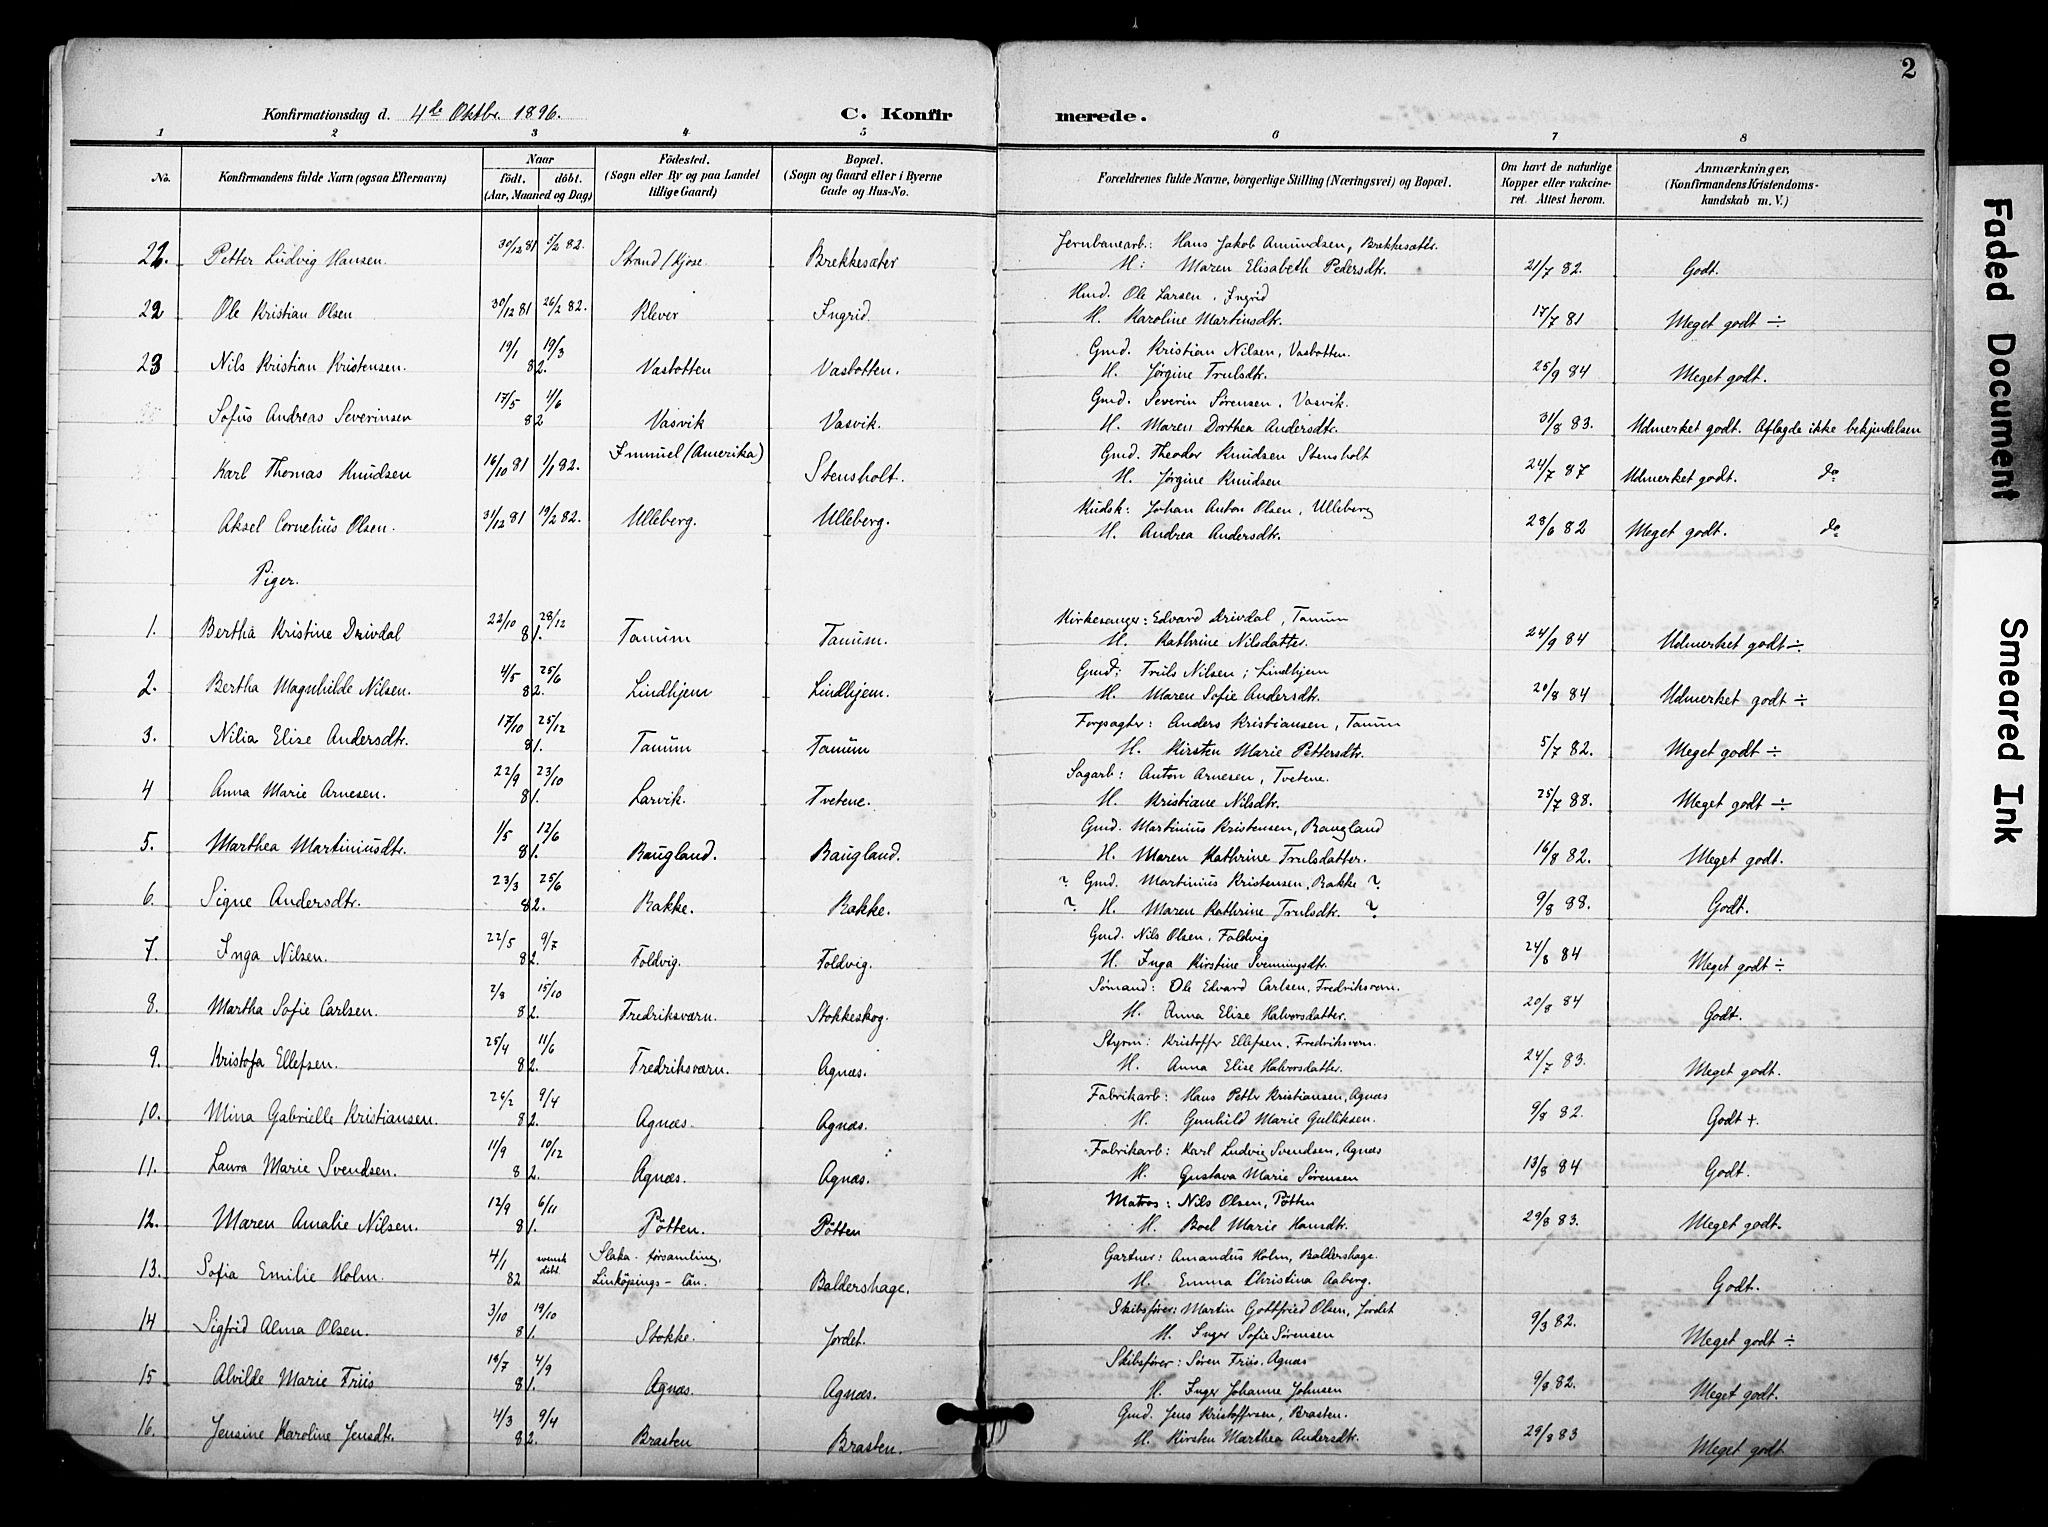 2
Konfirmationsdag d. 4de Oktbr. 1896.
C. Konfirmerede.
1 2 3 4 5 6 7 8
No.
Konfirmandens fulde Navn (ogsaa Efternavn)
Naar
født. døbt.
(Aar, Maaned og Dag)
Fødested.
(Sogn eller By og paa Landet
tillige Gaard)
Bopæl.
(Sogn og Gaard eller i Byerne
Gade og Hus-No.
Forældrenes fulde Navne, borgerlige Stilling (Næringsvei) og Bopæl.
Om havt de naturlige
Kopper eller vakcine-
ret. Attest herom.
Anmærkninger.
(Konfirmandens Kristendoms-
kundskab m. V.)
30/12 81 5/2 82. Jernbanearb: Hans Jakob Amundsen, Brekkesætr.
21. Petter Ludvig Hansen. Strand/Kjose. Brekkesæter H: Maren Elisabeth Pedersdtr. 21/7 82. Godt.
30/12 81 26/2 82. Hmd. Ole Larsen, Ingrid
22 Ole Kristian Olsen Klever Ingrid. H. Karoline Martinsdtr. 17/7 81 Meget godt ÷
19/1 19/3 Gmd. Kristian Nilsen, Vasbotten.
23 Nils Kristian Kristensen. 82. Vasbotten Vasbotten. H. Jørgine Trulsdtr. 25/9 84 Meget godt.
17/5 4/6 Gmd. Severin Sørensen, Vasvik.
Sofus Andreas Severinsen 82 Vasvik Vasvik. H. Maren Dorthea Andersdtr. 31/8 83. Udmerket godt. Aflagde ikke bekjendelsen
16/10 81 1/1 82. (Amerika) Gmd. Theodor Knudsen Stensholt
Karl Thomas Knudsen Stensholt. H. Jørgine Knudsen 24/7 87 Udmerket godt. do
31/12 81 19/2 82. Kudsk: Johan Anton Olsen, Ulleberg
Aksel Cornelius Olsen. Ulleberg. Ulleberg. H. Andrea Andersdtr. 28/6 82 Meget godt. do
Piger.
22/10 28/12 Kirkesanger: Edvard Drivdal, Tanum
1. Bertha Kristine Drivdal 81. Tanum Tanum. H. Kathrine Nilsdatter. 24/9 84 Udmerket godt ÷
4/5 25/6 Gmd: Truls Nilsen; Lindhjem
2. Bertha Magnhilde Nilsen. 82. Lindhjem Lindhjem. H. Maren Sofie Andersdtr. 20/8 84 Udmerket godt ÷
17/10 25/12 Forpagter: Anders Kristiansen, Tanum
3. Nilia Elise Andersdtr. 81. Tanum Tanum H. Kirsten Marie Pettersdtr. 5/7 82. Meget godt ÷
22/9 23/10 Sagarb: Anton Arnesen, Tvetene.
4 Anna Marie Arnesen. 81. Larvik. Tvetene. H. Kristiane Nilsdtr. 25/7 88. Meget godt ÷
1/5 12/6 Gmd. Martinius Kristensen, Baugland
5. Marthea Martiniusdtr. 81. Baugland. Baugland. H. Maren Kathrine Trulsdatter. 16/8 82. Meget godt.
23/3 25/6 ? Gmd. Martinius Kristensen, Bakke ?
6. Signe Andersdtr. 82. Bakke. Bakke. ? H. Maren Kathrine Trulsdtr. ? 9/8 88. Godt.
22/5 9/7 Gmd. Nils Olsen, Foldvig
7. Inga Nilsen. 82. Foldvig. Foldvig. H. Inga Kirstine Svenningsdtr. 24/8 84 Meget godt ÷
2/8 15/10 Sømand: Ole Edvard Carlsen, Fredriksværn.
8. Martha Sofie Carlsen. 82. Fredriksværn. Stokkeskog. H. Anna Elise Halvorsdatter. 20/8 84 Godt.
25/4 11/6 Styrm: Kristoffer Ellefsen, Fredriksværn.
9. Kristofa Ellefsen. 82. Fredriksværn. Agnæs. H. Anna Elise Halvorsdatter. 24/7 83. Meget godt.
26/2 9/4 Fabrikarb: Hans Petter Kristiansen, Agnæs
10. Mina Gabrielle Kristiansen. 82. Agnæs. Agnæs. H. Gunhild Marie Gulliksen. 9/8 82. Godt +.
11/9 10/12 Fabrikarb: Karl Ludvig Svendsen, Agnæs
11. Laura Marie Svendsen. 82. Agnæs. Agnæs. H. Gustava Marie Sørensen 13/8 84 Godt.
12/9 6/11 Matros: Nils Olsen, Pøtten
12. Maren Amalie Nilsen. 81. Pøtten. Pøtten H. Boel Marie Hansdtr. 29/8 83. Meget godt.
4/1 svensk døbt Slaka-församling, Gartner: Amandus Holm, Baldershage.
13. Sofia Emilie Holm. 82 Linköpings-län. Baldershage. H. Emma Christina Aaberg. Godt.
3/10 19/10 Skibsfører: Martin Gottfried Olsen, Jordet
14 Sigfrid Alma Olsen. 81. Stokke. Jordet. H. Inger Sofie Sørensen 9/3 82. Meget godt ÷
19/7 4/9 Skibsfører: Søren Friis, Agnæs
15 Alvilde Marie Friis 81. Agnæs. Agnæs. H. Inger Johanne Johnsen 9/8 82. Meget godt.
4/3 9/4 Gmd. Jens Kristoffersen, Brasten.
16. Jensine Karoline Jensdtr. 82. Brasten Brasten. H. Kirsten Marthea Andersdtr. 29/8 83 Meget godt
Faded Document
Smeared Ink